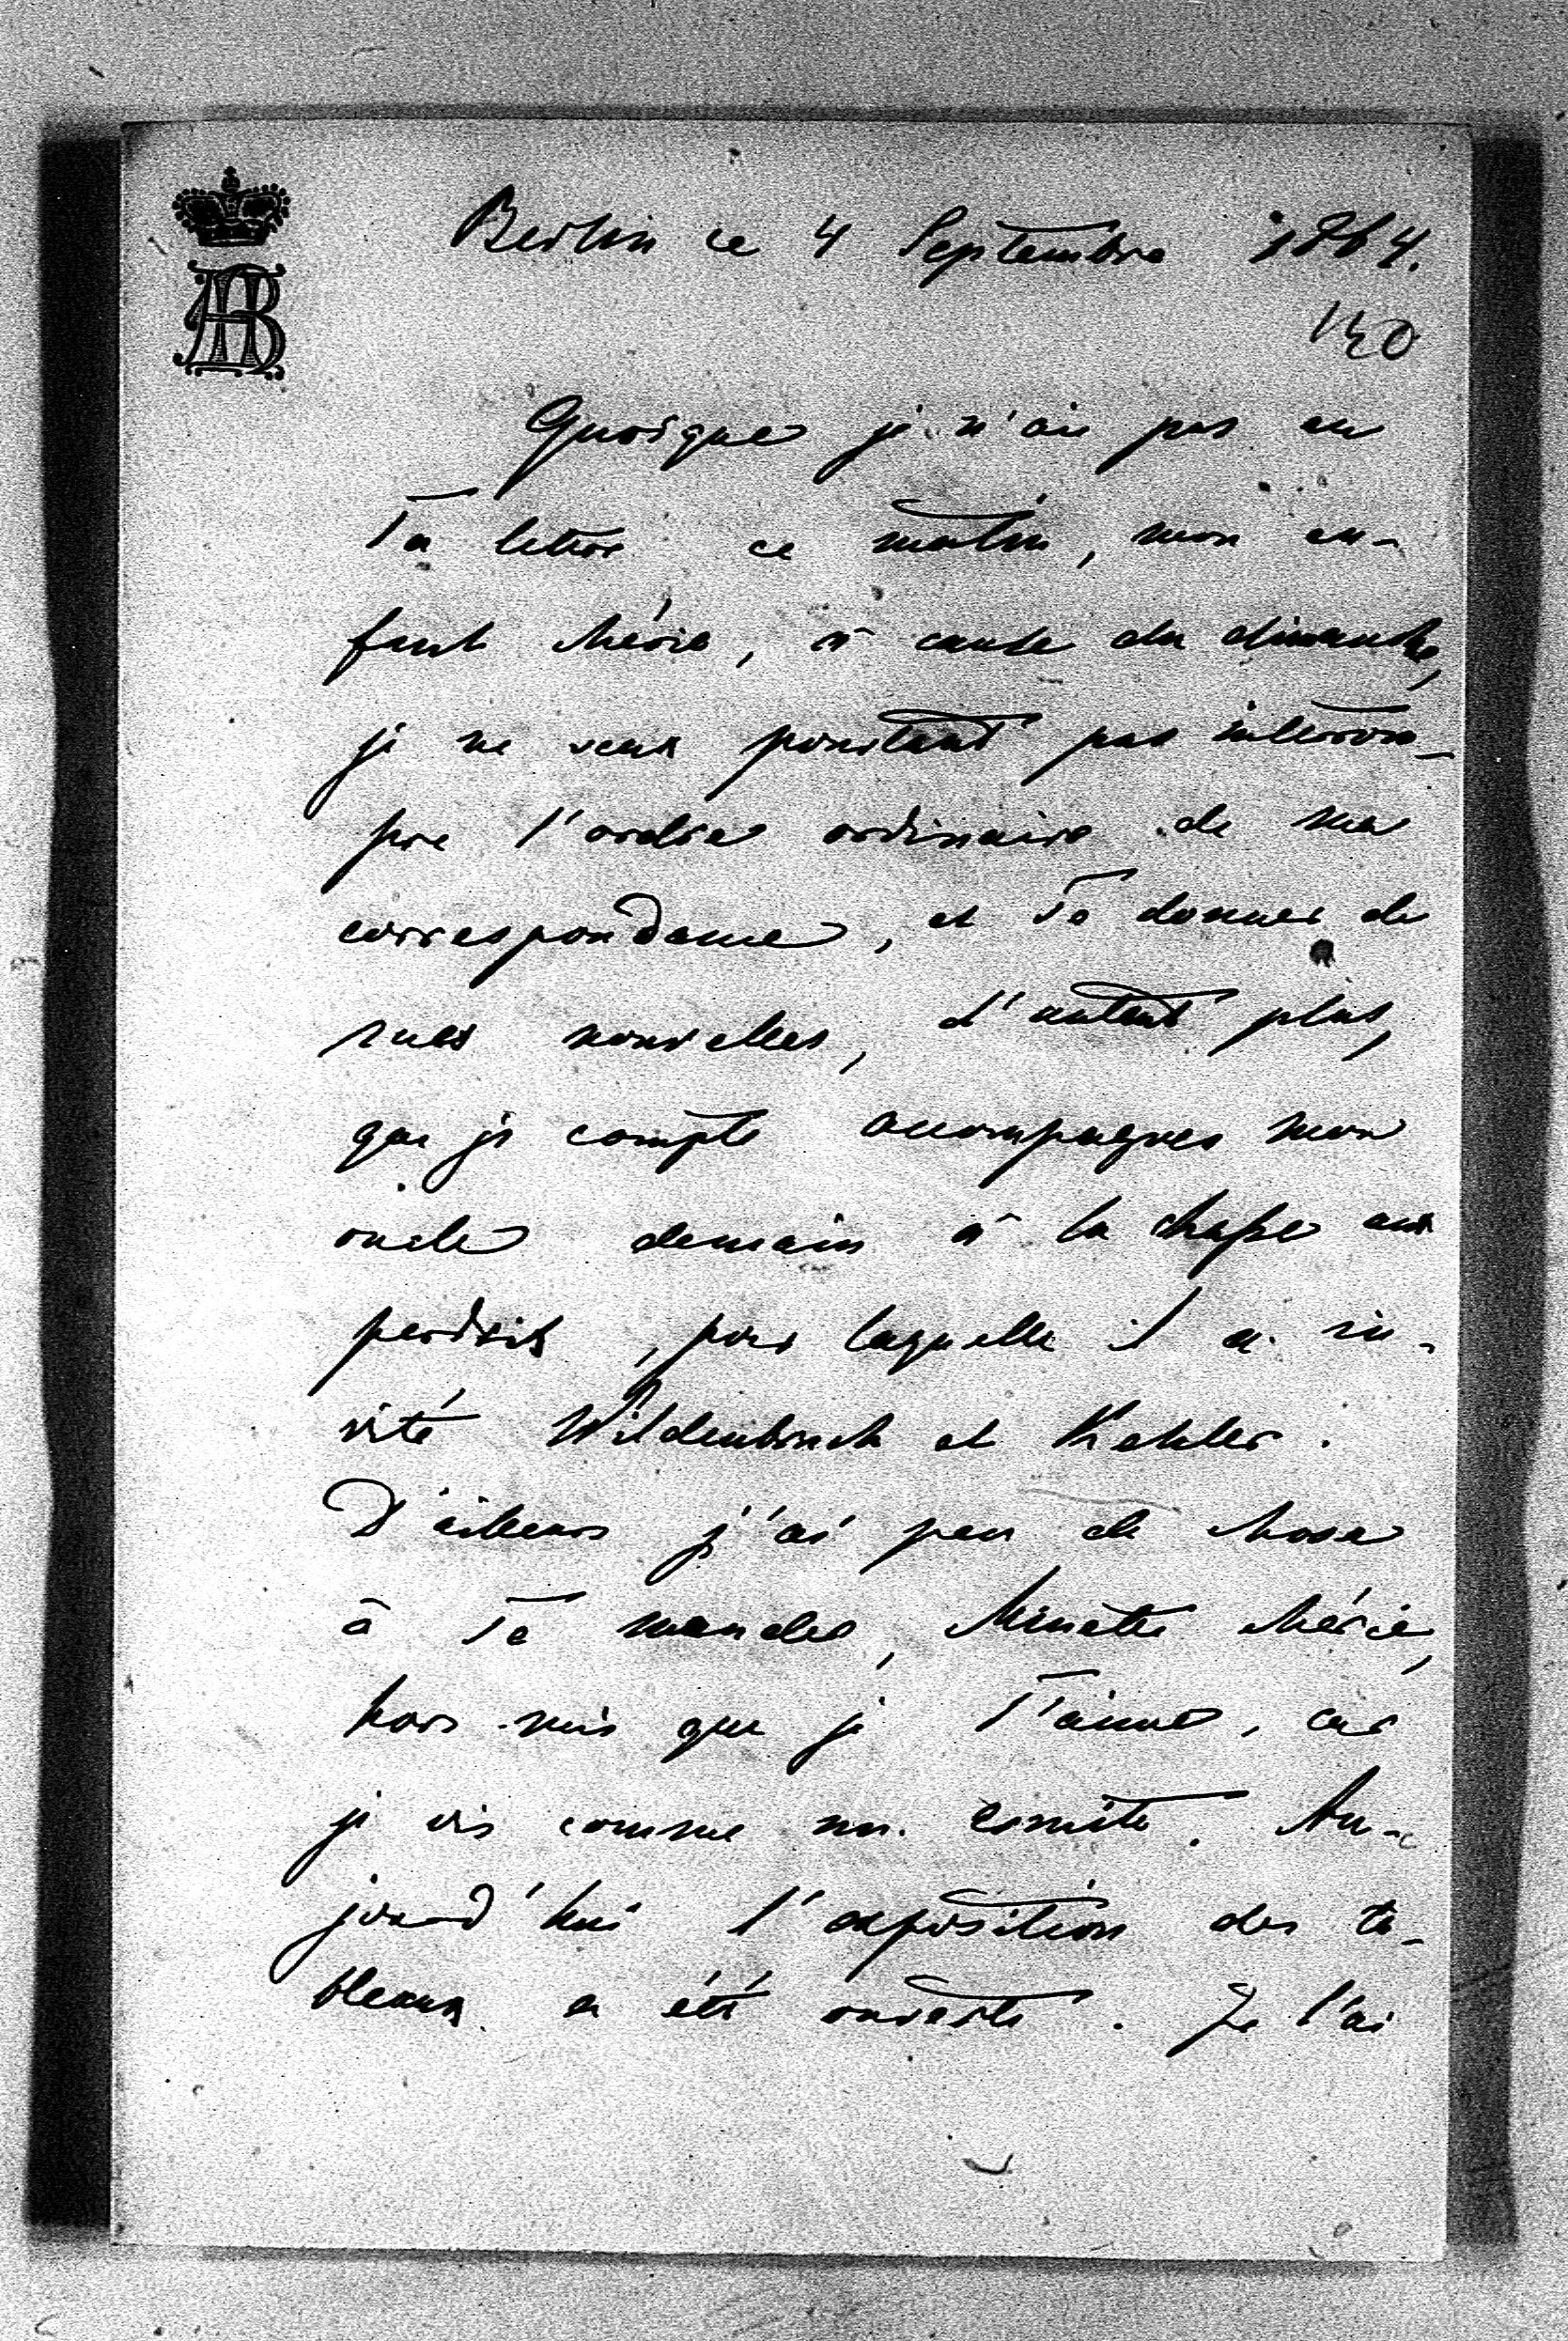 Berlin ce 4 Septembre 1864.
140
Quoique je n'aie pas eu
Ta lettre ce matin, mon en-
fant chérie, à cause du dimanche,
je ne veux pourtant pas interrom-
pre l'ordre ordinaire de ma
correspondance, et Te donner de
mes nouvelles, d'autant plus,
que je compte accompagner mon
oncle demain à la chasse aux
perdrix, pour laquelle il a in-
vité Wildenbruch et Kehler.
D'ailleurs j'ai peu de chose
à Te mander, Minette chérie,
hors-mis que je T'aime, car
je vis comme un ermite. Au-
jourd'hui l'exposition des ta-
bleaux a été ouverte. Je l'ai